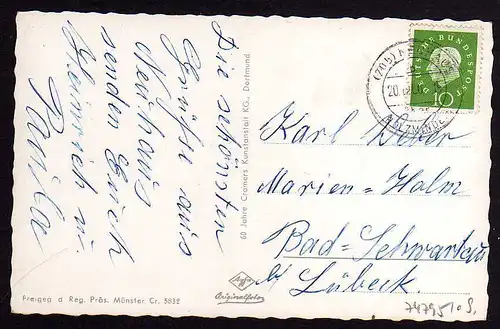 Die schönsten
Grüße aus
Neuhaus
senden Euch
Heinrich u.
60 Jahre Cramers Kunstanstalt KG., Dortmund
Agfa
Originalfoto
Freigeg d Reg. Präs. Münster Cr. 5832
DEUTSCHE BUNDESPOST
10
(20b)
20.
Karl
Marien-Holm
Bad-Schwartau
b/ Lübeck.